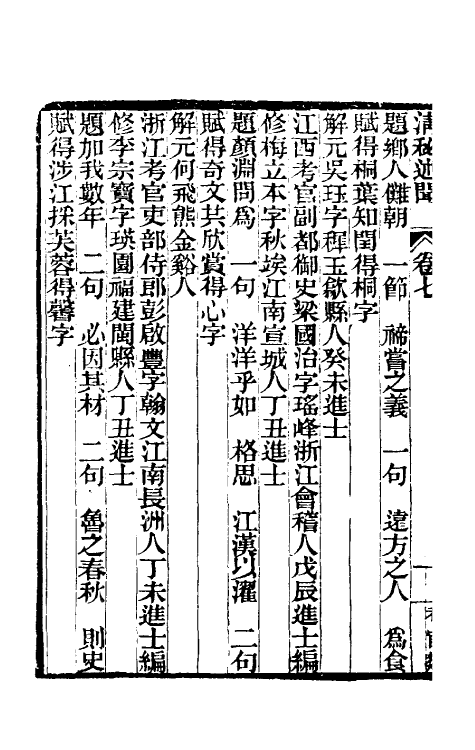 清秘述聞 卷七
題鄉人儺朝 一節 禘嘗之義 一句 遠方之人 為食
賦得桐葉知閏得桐字
解元吳珏字稺玉歙縣人癸未進士
江西考官副都御史梁國治字瑤峰浙江會稽人戊辰進士編
修梅立本字秋竢江南宣城人丁丑進士
題顏淵問為 一句 洋洋乎如 格思 江漢以濯 二句
賦得奇文共欣賞得心字
解元何飛熊金谿人
浙江考官吏部侍郎彭啟豐字翰文江南長洲人丁未進士編
修李宗寶字瑛園福建閩縣人丁丑進士
題加我數年 二句 必因其材 二句 魯之春秋 則史
賦得涉江採芙蓉得馨字